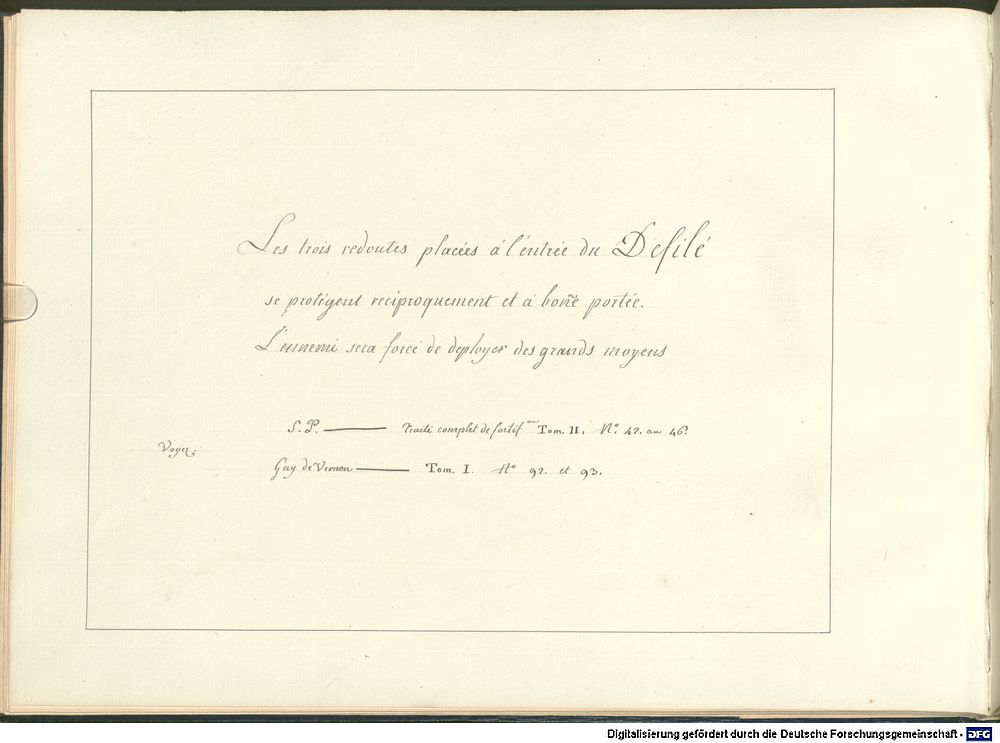 Les trois redoutes placées à l'éntrée du Defilé
se protégent reciproquement et à boñe portée.
L'ennemi sera forcé de deployer des grands moyens
S. P. ——— Traité complet de fortif.on Tom. II. No. 42. au 46.
Voyez:
Gay de Vernon ——— Tom. I. No 92. et 93.
Digitalisierung gefördert durch die Deutsche Forschungsgemeinschaft - DFG